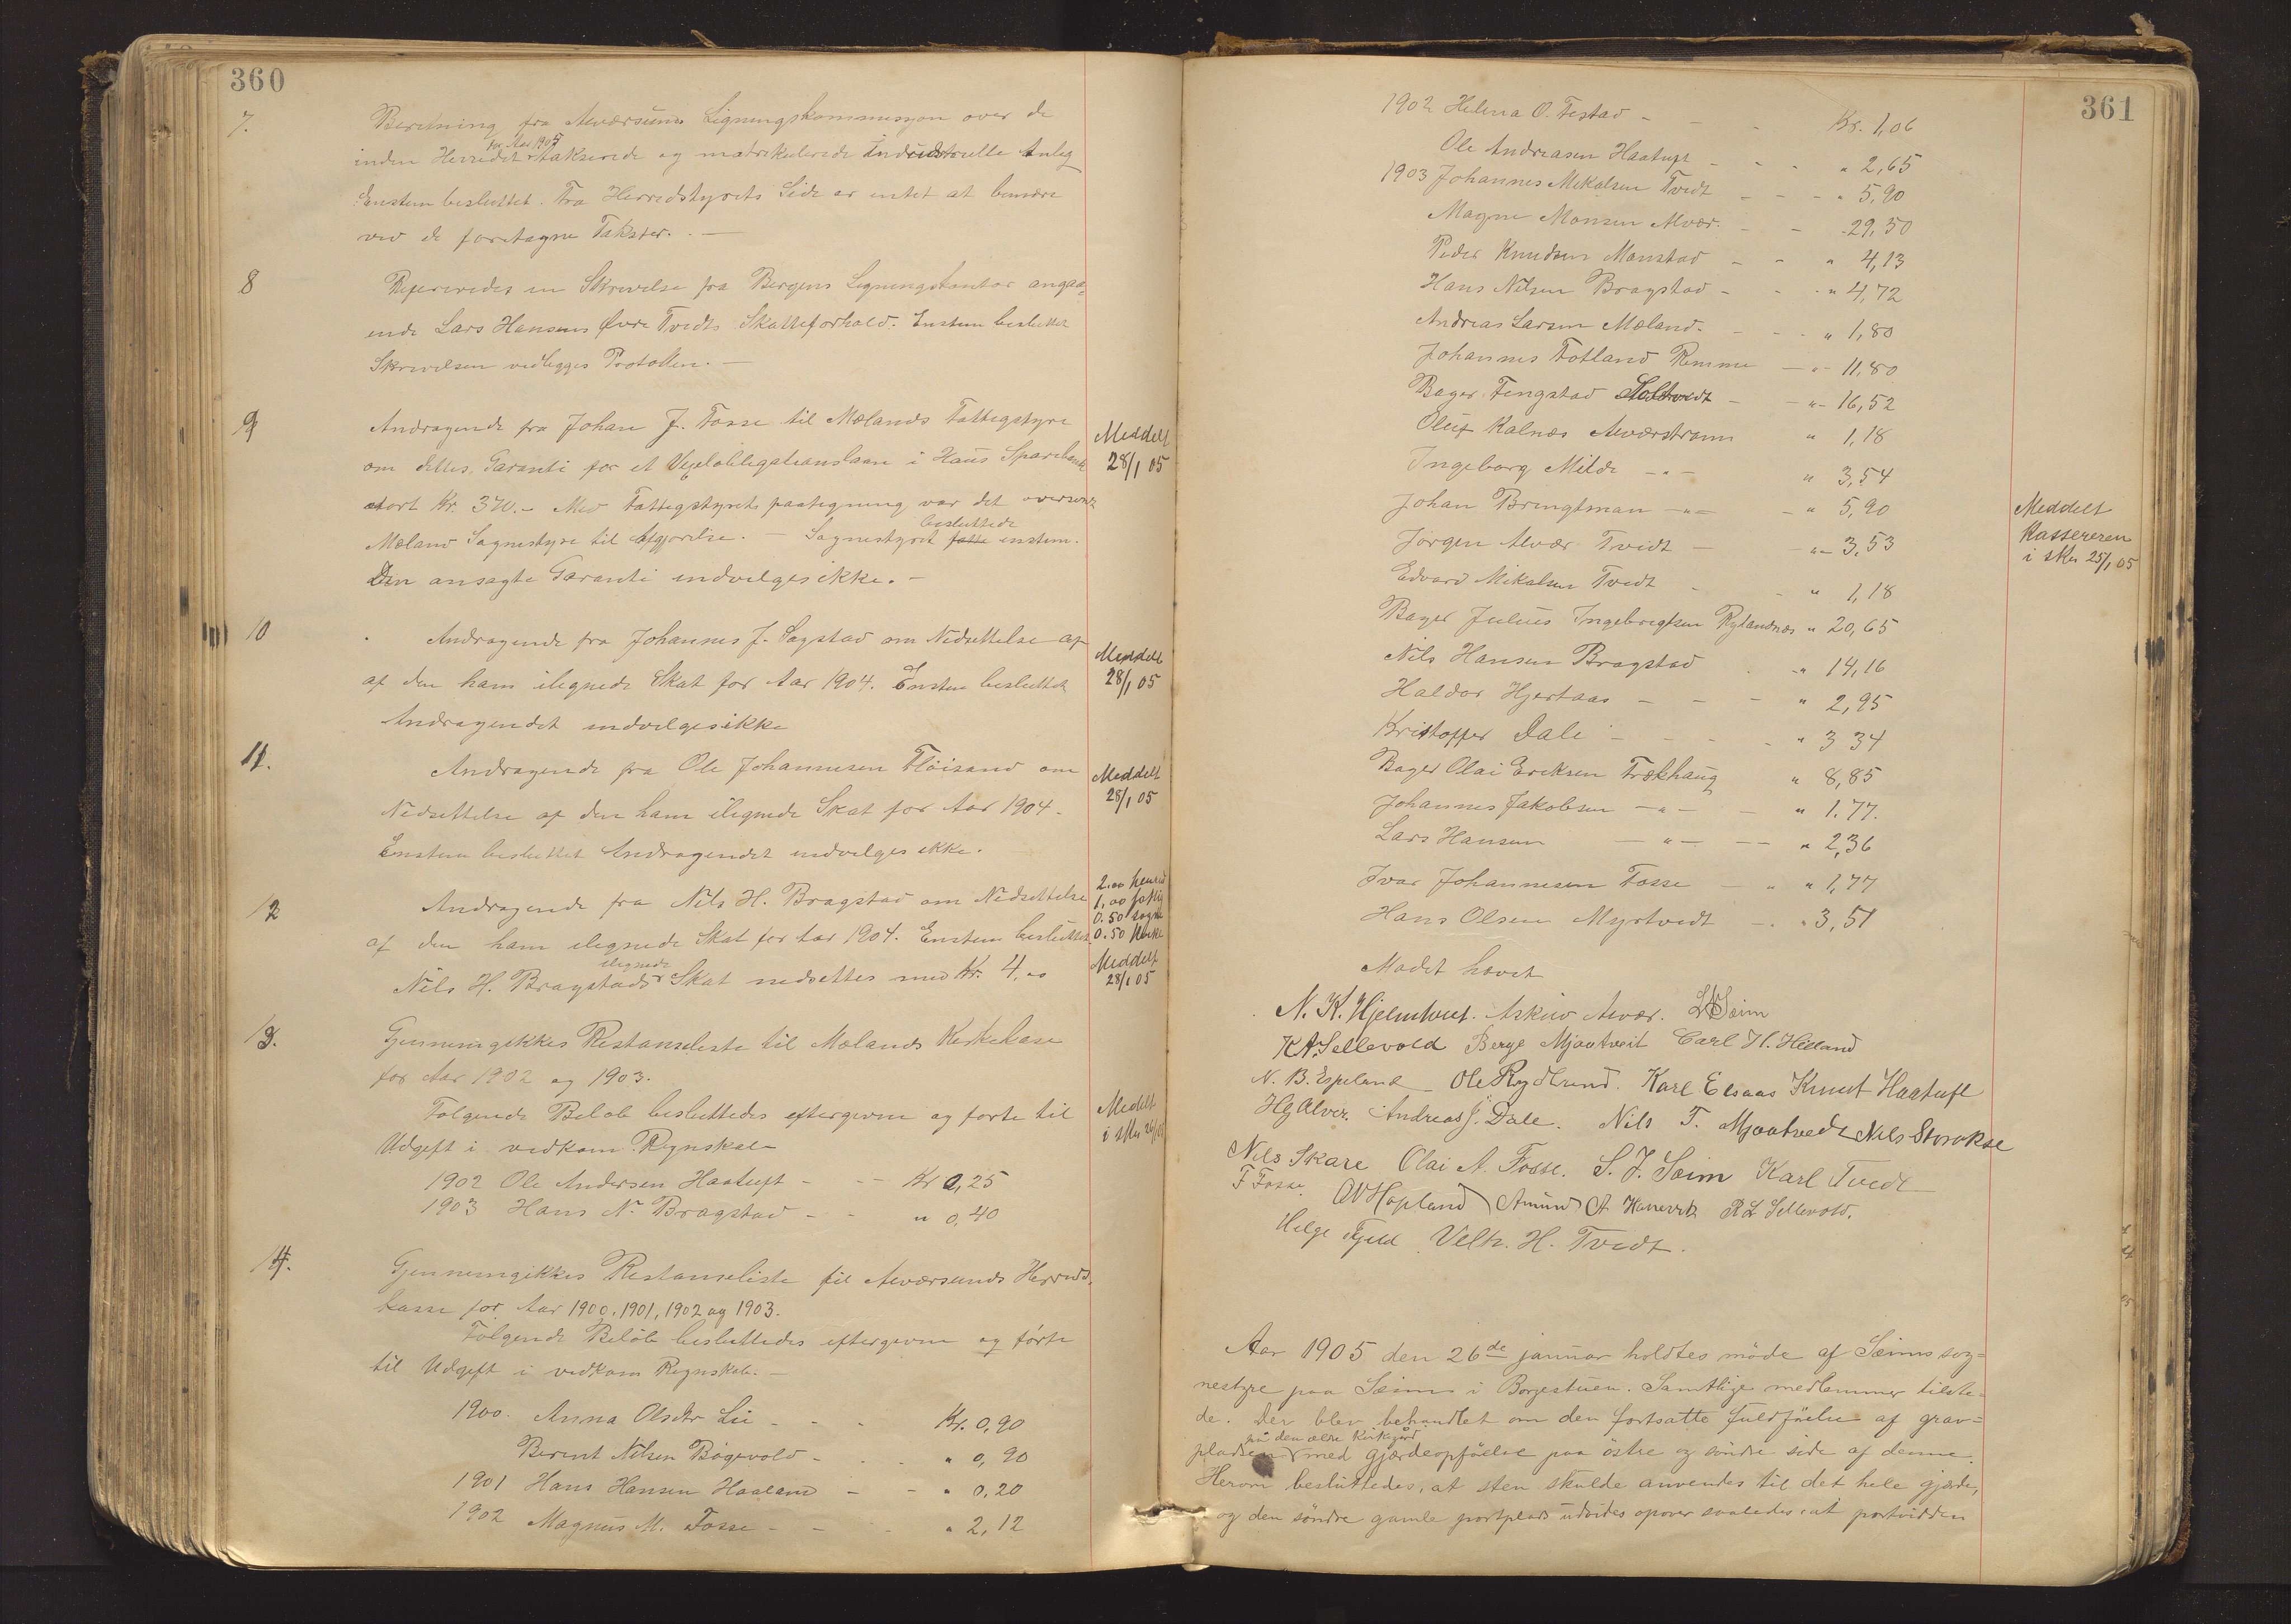 360
7. Beretning fra Alværsunds Ligningskommissjon over de
for Aar 1905
inden Herredet takserede og matrikulerede Industrielle Anleg
Enstem besluttet. Fra Herredstyrets Side er intet at bemærke
ved de foretagne Takster. —
8 Refereredes en Skrivelse fra Bergens Ligningskontor angaa=
ende Lars Hansens Øvre Tvedts Skatteforhold. Enstem besluttet
Skrivelsen vedlegges Protokollen. —
9 Andragende fra Johan J. Fosse til Mælands Fattigstyre
om dettes Garanti for et Vexelobligationslaan i Haus Sparebank
stort Kr. 370.- Med Fattigstyrets paategning var det oversendt
besluttede
Mæland Sognestyre til Afgjørelse. — Sognestyret fatte enstem.
Den ansøgte Garanti indvelges ikke. —
Meddelt
28/1 05
10 Andragende fra Johannes J. Sagstad om Nedsettelse af
af den ham ilegnede Skat for Aar 1904. Enstem besluttet
Andragendet indvelges ikke
Meddelt
28/1 05
11. Andragende fra Ole Johannesen Fløisand om
Nedsettelse af den ham ilegnede Skat for Aar 1904.
Enstem besluttet Andragendet indvelges ikke.
Meddelt
28/1 05
12 Andragende fra Nils H. Bragstad om Nedsettelse
af den ham ilegnede Skat for Aar 1904. Enstem besluttet
ilegnede
Nils H. Bragstads Skat nedsettes med Kr. 4.00
2.00 herred
1,00 fattig
0.50 sogne
0.50 kirke
Meddelt
28/1 05
13. Gjennemgikkes Restanseliste til Mælands Kirkekase
for Aar 1902 og 1903.
Følgende Beløb besluttedes eftergivne og førte til
Udgift i vedkom. Regnskab
Meddelt
i skr 26/1 05
1902 Ole Andersen Haatuft - - - Kr 0,25
1903 Hans N. Bragstad - - " 0,40
14. Gjennemgikkes Restanseliste til Alværsunds Herreds
kasse for Aar 1900, 1901, 1902 og 1903.
Følgende Beløb besluttedes eftergivne og førte
til Udgift i vedkom Regnskab. —
1900. Anna Olsdtr Lii - - - Kr. 0,90
Berent Nilsen Bøgevold - - - " 0,90
1901 Hans Hansen Haaland - - " 0.20
1902 Magnus M. Fosse - - - " 2,12
361
1902 Helena O. Festad - - - Kr. 1,06
Ole Andreasen Haatuft - - - " 2,65
1903 Johannes Mikalsen Tvedt - - - " 5,90
Magne Monsen Alvær. - - 29,50
Peder Knudsen Monstad - - " 4,13
Hans Nilsen Bragstad - - " 4,72
Andreas Larsen Mæland. - - - " 1,80
Johannes Fotland Remme - " - 11,80
Bager Fengstad Soltvedt - - " - 16,52
Oluf Kalnæs Alværstrøm " 1,18
Ingeborg Milde - " - " 3,54
Johan Bringtman - " - - " 5,90
Jørgen Alvær Tvedt - - " - 3,53
Edvard Mikalsen Tvedt - - " 1,18
Bager Julius Ingebrigtsen Rylandnæs " 20,65
Nils Hansen Bragstad - " 14,16
Haldor Hjertaas - - - " 2,95
Kristoffer Dale - - - - " 3 34
Bager Olai Eriksen Frækhaug " 8,85
Johannes Jakobsen - " - - " 1.77.
Lars Hansen - " - - - " 2,36
Ivar Johannesen Fosse - " " 1,77
Hans Olsen Myrtvedt - . " 3,51
Meddelt
Kassereren
i skr 25/1 05
Mødet hævet
N. K. Hjelmtveit. Askew Alvær. L Seim
K A. Sellevold Berge Mjaatveit Carl H. Helland
N. B. Espeland Ole Rydland. Karl Elsaas Knut Haatuft
Hg Alver. Andreas J. Dale. Nils T. Mjaatvedt Nils Storokse
Nils Skare Olai A. Fosse. S. J. Seim Karl Tvedt
F Fosse. O N Hopland Amund A. R L Sellevold.
Helge Fyllid Velh. H. Tvedt.
Aar 1905 den 26de januar holdtes møde af Seims sog=
nestyre paa Seim i Borgestuen. Samtlige medlemmer tilste=
de. Der blev behandlet om den fortsatte fuldførelse af grav=
på den ældre Kirkegård
pladsen med gjærdeopførelse paa østre og søndre side af denne.
Herom besluttedes, at sten skulde anvendes til det hele gjærde,
og den søndre gamle portplads udvides opover saaledes at portvidden